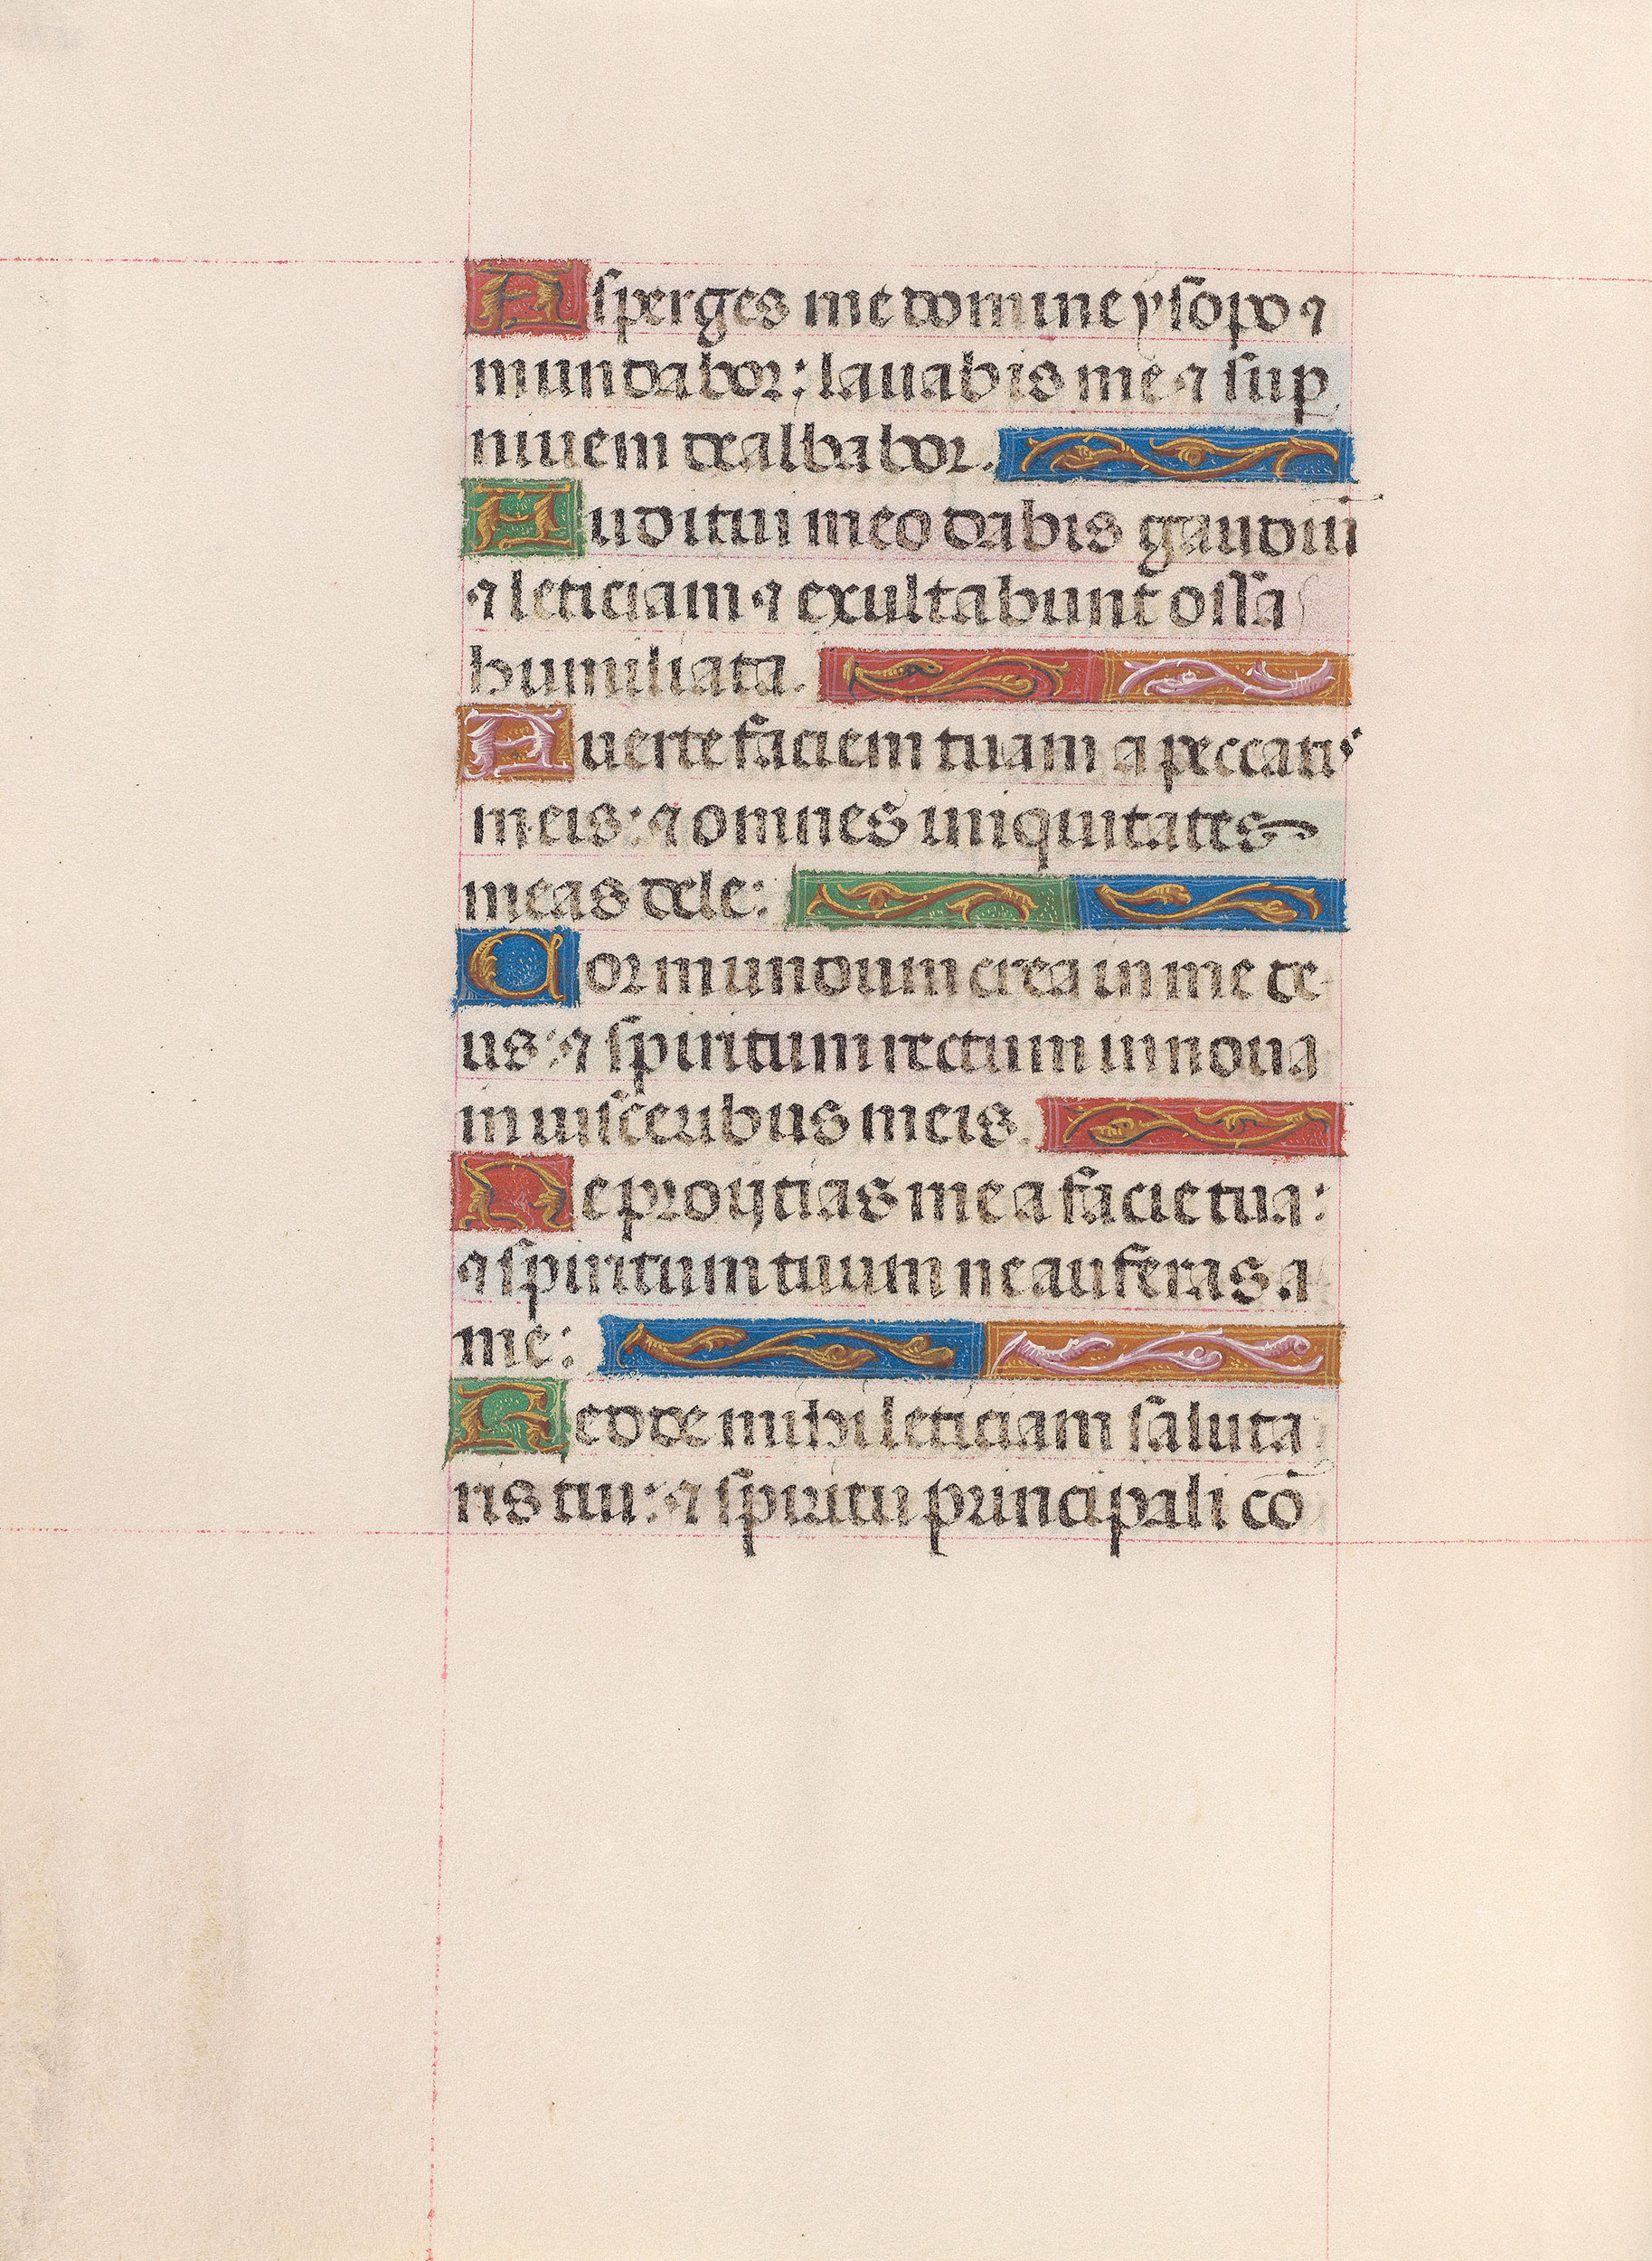 Asperges me domine ysopo ⁊
mundabor: lauabis me ⁊ sup
niuem dealbabor.
Auditui meo dabis gaudiū
⁊ leticiam ⁊ exultabunt ossa
humiliata.
Auerte faciem tuam a peccatis
meis: ⁊ omnes iniquitates
meas dele:
Cor mundum crea in me de
us: ⁊ spiritum rectum innoua
in uisceribus meis.
Ne proijcias me a facie tua:
⁊ spiritum tuum ne auferas a
me:
Redde mihi leticiam saluta
ris tui: ⁊ spiritu principali cō